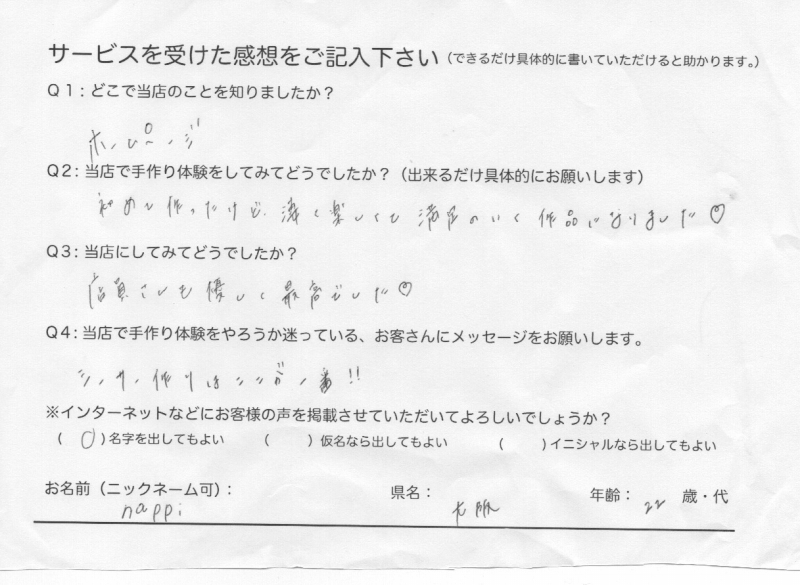 サービスを受けた感想をご記入下さい（できるだけ具体的に書いていただけると助かります。）
Q1：どこで当店のことを知りましたか？
ホームページ
Q2：当店で手作り体験をしてみてどうでしたか？（出来るだけ具体的にお願いします）
初めて作ったけど、凄く楽しくて満足のいく作品になりました♡
Q3：当店にしてみてどうでしたか？
店員さんも優しく最高でした♡
Q4：当店で手作り体験をやろうか迷っている、お客さんにメッセージをお願いします。
シーサー作りはここが一番!!
※インターネットなどにお客様の声を掲載させていただいてよろしいでしょうか？
（ ○ ）名字を出してもよい （ ）仮名なら出してもよい （ ）イニシャルなら出してもよい
お名前（ニックネーム可）：nappi 県名：大阪 年齢：22 歳・代